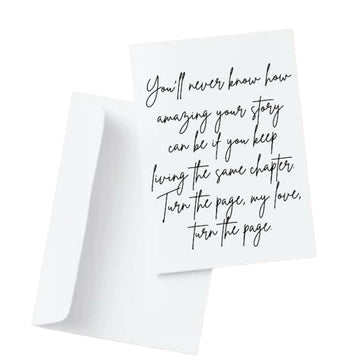 You'll never know how
amazing your story
can be if you keep
living the same chapter.
Turn the page, my love,
turn the page.